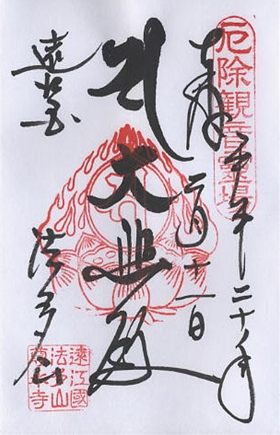 厄除観音霊場
奉拝
平成二十年
月十一日
大悲殿
法多山
遠江國
法多山
尊永寺